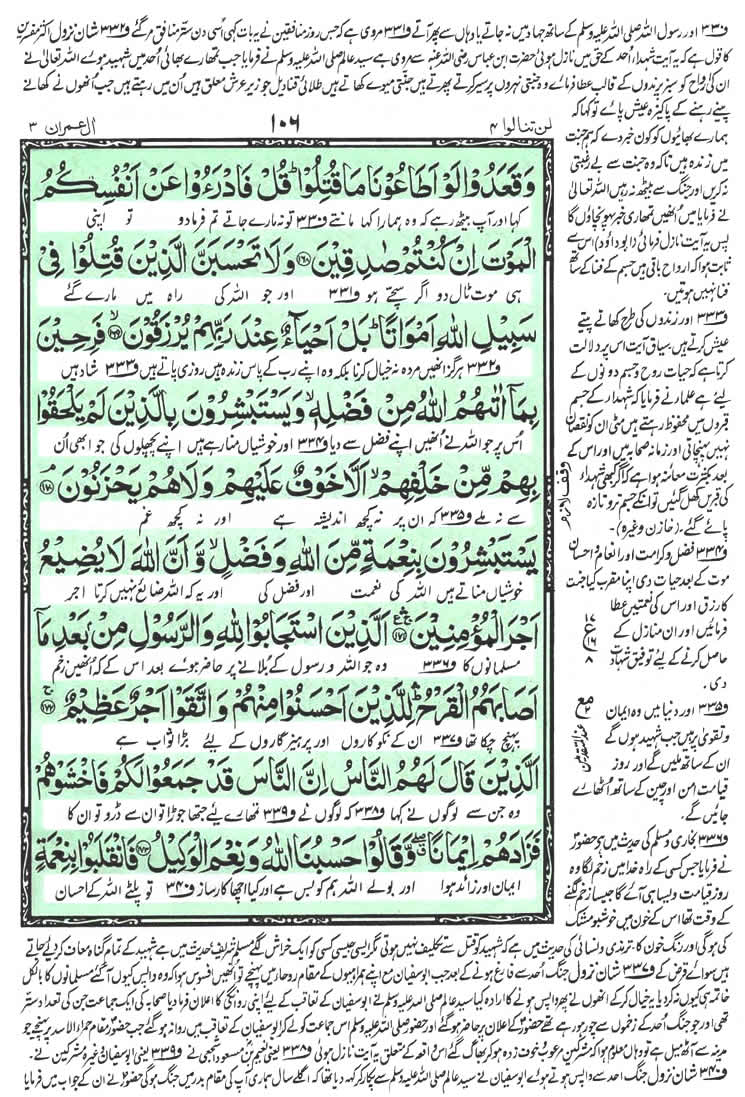 و۳۳۰ اور رسول اللہ صلی اللہ علیہ وسلم کے ساتھ جہاد میں نہ جاتے یا وہاں سے پھر آتے و۳۳۱ مروی ہے کہ جس روز منافقین نے یہ بات کہی اُسی دن ستر منافق مر گئے و۳۳۲ شان نزول اکثر مفسرین
کا قول ہے کہ یہ آیت شہداء اُحد کے حق میں نازل ہوئی حضرت ابن عباس رضی اللہ عنہما سے مروی ہے سید عالم صلی اللہ علیہ وسلم نے فرمایا جب تمھارے بھائی اُحد میں شہید ہوے اللہ تعالیٰ نے
ان کی ارواح کو سبز پرندوں کے قالب عطا فرمائے وہ جنتی نہروں پر سیر کرتے پھرتے ہیں جنتی میوے کھاتے ہیں طلائی قنادیل جو زیر عرش معلق ہیں اُن میں رہتے ہیں جب اُنھوں نے کھانے
پینے رہنے کے پاکیزہ عیش پائے تو کہا کہ
ہمارے بھائیوں کو کون خبر دے کہ ہم جنت
میں زندہ ہیں تاکہ وہ جنت سے بے رغبتی
نہ کریں اور جنگ سے بیٹھ نہ رہیں اللہ تعالیٰ
نے فرمایا میں اُنھیں تمھاری خبر پہونچاؤں گا
پس یہ آیت نازل فرمائی (ابو داؤد) اس سے
ثابت ہوا کہ ارواح باقی ہیں جسم کے فنا کے ساتھ
فنا نہیں ہوتیں۔
و۳۳۳ اور زندوں کی طرح کھاتے پیتے
عیش کرتے ہیں سیاق آیت اس پر دلالت
کرتا ہے کہ حیات روح و جسم دونوں کے
لئے ہے علماء نے فرمایا کہ شہداء کے جسم
قبروں میں محفوظ رہتے ہیں مٹی ان کو نقصان
نہیں پہنچاتی اور زمانہ صحابہ میں اور اس کے
بعد بکثرت معائنہ ہوا ہے کہ اگر کبھی شہداء
کی قبریں کھل گئیں تو انکے جسم تر و تازہ
پائے گئے۔ (خازن وغیرہ)
و۳۳۴ فضل و کرامت اور انعام و احسان
موت کے بعد حیات دی اپنا مقرب کیا جنت
کا رزق اور اس کی نعمتیں عطا
فرمائیں اور ان منازل کے
حاصل کرنے کے لیے توفیق شہادت
دی۔
و۳۳۵ اور دنیا میں وہ ایمان
و تقویٰ پر ہیں جب شہید ہوں گے
ان کے ساتھ ملیں گے اور روز
قیامت امن اور چین کے ساتھ اُٹھائے
جائیں گے۔
و۳۳۶ بخاری و مسلم کی حدیث میں ہے حضور
نے فرمایا جس کسی کے راہ خدا میں زخم لگا وہ
روز قیامت ویسا ہی آئے گا جیسا زخم لگنے
کے وقت تھا اس کے خون میں خوشبو مشک
لن تنالوا ۴
۱۰۶
اٰل عمران ۳
وَقَعَدُوْا لَوْ اَطَاعُوْنَا مَا قُتِلُوْا ؕ قُلْ فَادْرَءُوْا عَنْ اَنْفُسِكُمُ
کہا اور آپ بیٹھ رہے کہ وہ ہمارا کہا مانتے و۳۳۰ تو نہ مارے جاتے تم فرما دو تو اپنی
الْمَوْتَ اِنْ كُنْتُمْ صٰدِقِيْنَ ۝۱۶۸ وَلَا تَحْسَبَنَّ الَّذِيْنَ قُتِلُوْا فِيْ
ہی موت ٹال دو اگر سچے ہو و۳۳۱ اور جو اللہ کی راہ میں مارے گئے
سَبِيْلِ اللّٰهِ اَمْوَاتًا ؕ بَلْ اَحْيَآءٌ عِنْدَ رَبِّهِمْ يُرْزَقُوْنَ ۝۱۶۹ فَرِحِيْنَ
و۳۳۲ ہرگز انھیں مردہ نہ خیال کرنا بلکہ وہ اپنے رب کے پاس زندہ ہیں روزی پاتے ہیں و۳۳۳ شاد ہیں
بِمَاۤ اٰتٰىهُمُ اللّٰهُ مِنْ فَضْلِهٖ ۙ وَيَسْتَبْشِرُوْنَ بِالَّذِيْنَ لَمْ يَلْحَقُوْا
اُس پر جو اللہ نے اُنھیں اپنے فضل سے دیا و۳۳۴ اور خوشیاں منا رہے ہیں اپنے پچھلوں کی جو ابھی اُن
بِهِمْ مِّنْ خَلْفِهِمْ ۙ اَلَّا خَوْفٌ عَلَيْهِمْ وَلَا هُمْ يَحْزَنُوْنَ ۝۱۷۰
سے نہ ملے و۳۳۵ کہ ان پر نہ کچھ اندیشہ ہے اور نہ کچھ غم
يَسْتَبْشِرُوْنَ بِنِعْمَةٍ مِّنَ اللّٰهِ وَفَضْلٍ ۙ وَّاَنَّ اللّٰهَ لَا يُضِيْعُ
خوشیاں مناتے ہیں اللہ کی نعمت اور فضل کی اور یہ کہ اللہ ضائع نہیں کرتا اجر
اَجْرَ الْمُؤْمِنِيْنَ ۝۱۷۱ اَلَّذِيْنَ اسْتَجَابُوْا لِلّٰهِ وَالرَّسُوْلِ مِنْۢ بَعْدِ مَاۤ
مسلمانوں کا و۳۳۶ وہ جو اللہ و رسول کے بلانے پر حاضر ہوئے بعد اس کے کہ اُنھیں زخم
اَصَابَهُمُ الْقَرْحُ ۛؕ لِلَّذِيْنَ اَحْسَنُوْا مِنْهُمْ وَاتَّقَوْا اَجْرٌ عَظِيْمٌ ۝۱۷۲
پہنچ چکا تھا و۳۳۷ ان کے نکوکاروں اور پرہیزگاروں کے لیے بڑا ثواب ہے
اَلَّذِيْنَ قَالَ لَهُمُ النَّاسُ اِنَّ النَّاسَ قَدْ جَمَعُوْا لَكُمْ فَاخْشَوْهُمْ
وہ جن سے لوگوں نے کہا و۳۳۸ کہ لوگوں نے و۳۳۹ تمھارے لیے جتھا جوڑا تو ان سے ڈرو تو ان کا
فَزَادَهُمْ اِيْمَانًا ۖۗ وَّقَالُوْا حَسْبُنَا اللّٰهُ وَنِعْمَ الْوَكِيْلُ ۝۱۷۳ فَانْقَلَبُوْا بِنِعْمَةٍ
ایمان اور زائد ہوا اور بولے اللہ ہم کو بس ہے اور کیا اچھا کارساز و۳۴۰ تو پلٹے اللہ کے احسان
وقف لازم
۱۷
ع
۱۶
۸
مع
عند المتقدمین
کی ہوگی اور رنگ خون کا۔ ترمذی و نسائی کی حدیث میں ہے کہ شہید کو قتل سے تکلیف نہیں ہوتی مگر ایسی جیسی کسی کو ایک خراش لگے مسلم شریف حدیث میں ہے شہید کے تمام گناہ معاف کر دیے جاتے
ہیں سوائے قرض کے و۳۳۷ شان نزول جنگ اُحد سے فارغ ہونے کے بعد جب ابوسفیان مع اپنے ہمراہیوں کے مقام روحاء میں پہنچے تو اُنھیں افسوس ہوا کہ وہ واپس کیوں آگئے مسلمانوں کا بالکل
خاتمہ ہی کیوں نہ کر دیا یہ خیال کر کے انھوں نے پھر واپس ہونے کا ارادہ کیا سید عالم صلی اللہ علیہ وسلم نے ابوسفیان کے تعاقب کے لیے اپنی روانگی کا اعلان فرما دیا صحابہ کی ایک جماعت جن کی تعداد ستر
تھی اور جو جنگ اُحد کے زخموں سے چور ہو رہے تھے حضور کے اعلان پر حاضر ہو گئے اور حضور صلی اللہ علیہ وسلم اس جماعت کو لے کر ابوسفیان کے تعاقب میں روانہ ہو گئے جب حضور مقام حمراء الاسد پر پہنچے جو
مدینہ سے آٹھ میل ہے تو وہاں معلوم ہوا کہ مشرکین مرعوب و خوف زدہ ہو کر بھاگ گئے اس واقعہ کے متعلق یہ آیت نازل ہوئی و۳۳۸ یعنی نعیم بن مسعود اشجعی نے و۳۳۹ یعنی ابوسفیان وغیرہ مشرکین نے۔
و۳۴۰ شان نزول جنگ احد سے واپس ہوتے ہوئے ابوسفیان نے سید عالم صلی اللہ علیہ وسلم سے پکار کر کہہ دیا تھا کہ اگلے سال ہماری آپ کی مقام بدر میں جنگ ہوگی حضور نے ان کے جواب میں فرمایا